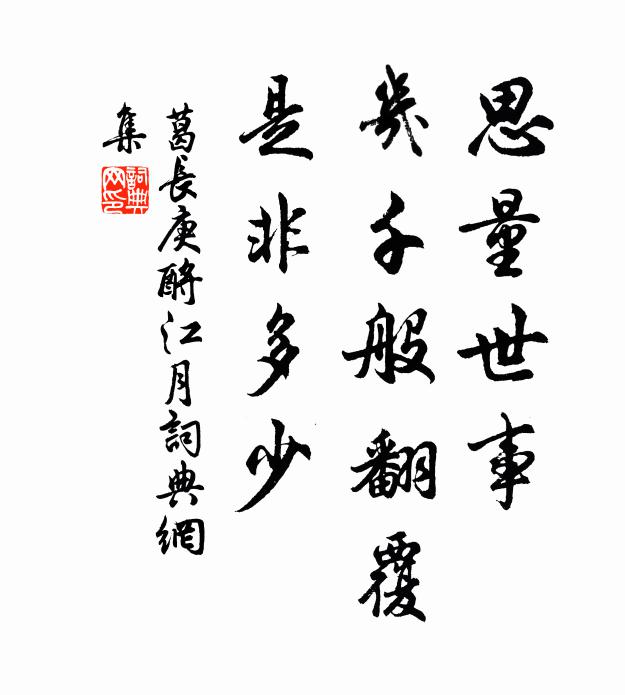 思量世事
幾千般翻覆
是非多少
葛長庚酹江月詞典網
集
詞典
网印